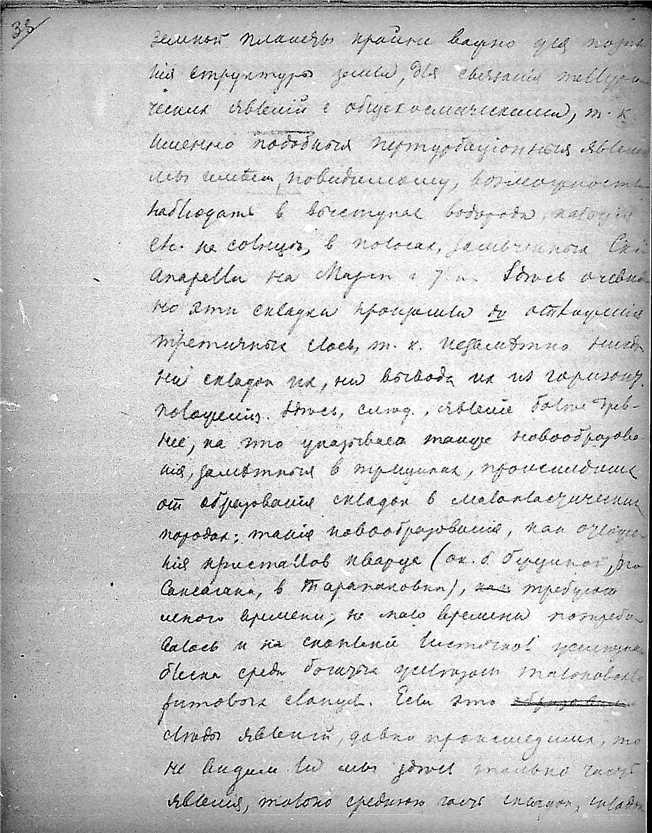 38
земной планеты крайне важно для пони
нія структуры земли, для связанія теллури
ческих явленій с общекосмическими, т. к.
именно подобныя пертурбаціонныя явленія
мы имѣем, повидимому, возможность
наблюдать в выступах водорода,
на солнцѣ, в полосах, замѣченных Ски
апарелли на Марсѣ и т. п. Здѣсь очевид
но эти складки произошли до отложенія
третичных слоев, т. к. незамѣтно нигдѣ
ни складок их, ни вывода их из горизонт.
положенія. Здѣсь, слѣд., явленіе болѣе древ
нее, на это указывает также новообразова
нія, замѣтныя в трещинах, происшедших
от образованія складок в малопластических
породах; такія новообразованія, как отложе
нія кристаллов кварца (ок. б.
Саксагани, в Тарапаковки), как требуют
много времени; не мало времени потребо
валось и на
среди богатых
слanцев. Если это
слѣды явленій, давно происшедших, то
не видим ли мы здѣсь только часть
явленія, только среднюю часть складок, складок